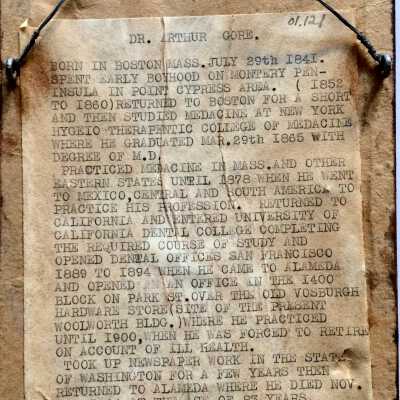 01.121
DR. ARTHUR GORE.
BORN IN BOSTON MASS.JULY 29th 1841.
SPENT EARLY BOYHOOD ON MONTERY PEN-
INSULA IN POINT CYPRESS AREA. ( 1852
TO 1860)RETURNED TO BOSTON FOR A SHORT
AND THEN STUDIED MEDACINE AT NEW YORK
HYGEIO THERAPENTIC COLLEGE OF MEDACINE
WHERE HE GRADUATED MAR.29th 1865 WITH
DEGREE OF M.D.
PRACTICED MEDACINE IN MASS.AND OTHER
EASTERN STATES UNTIL 1878 WHEN HE WENT
TO MEXICO,CENTRAL AND SOUTH AMERICA TO
PRACTICE HIS PROFESSION. RETURNED TO
CALIFORNIA AND ENTERED UNIVERSITY OF
CALIFORNIA DENTAL COLLEGE COMPLETING
THE REQUIRED COURSE OF STUDY AND
OPENED DENTAL OFFICES SAN FRANCISCO
1889 TO 1894 WHEN HE CAME TO ALAMEDA
AND OPENED AN AN OFFICE IN THE 1400
BLOCK ON PARK ST.OVER THE OLD VOSBURGH
HARDWARE STORE(SITE OF THE PRESENT
WOOLWORTH BLDG.)WHERE HE PRACTICED
UNTIL 1900,WHEN HE WAS FORCED TO RETIRE
ON ACCOUNT OF ILL HEALTH.
TOOK UP NEWSPAPER WORK IN THE STATE
OF WASHINGTON FOR A FEW YEARS THEN
RETURNED TO ALAMEDA WHERE HE DIED NOV.
THE AGE OF 83 YEARS